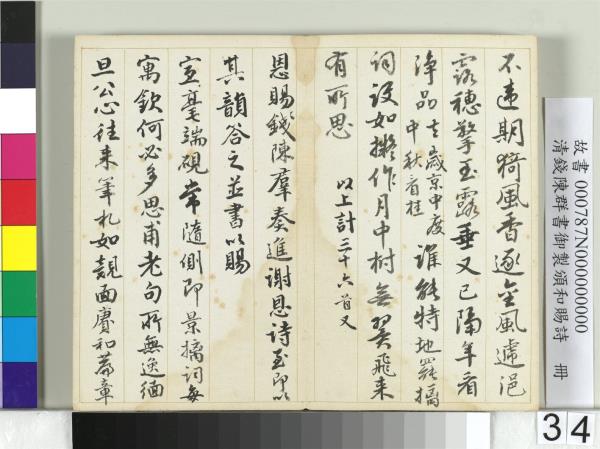 不違期猗風香逐金風遞浥
露穗擎玉露垂又已隔年看
淨品去歲京中度中秋看桂誰能特地羅摘
詞設如擬作月中樹無翼飛來
有所思
以上計三十六首又
恩賜錢陳羣奏進謝恩詩至即以
其韻答之並書以賜
宣毫端硯常隨側即景摛詞每
寓欽何必多思甫老句所無逸緬
旦公心往來筆札如覿面賡和篇章
故書 000787N000000000
清錢陳群書御製頒和賜詩 冊
34